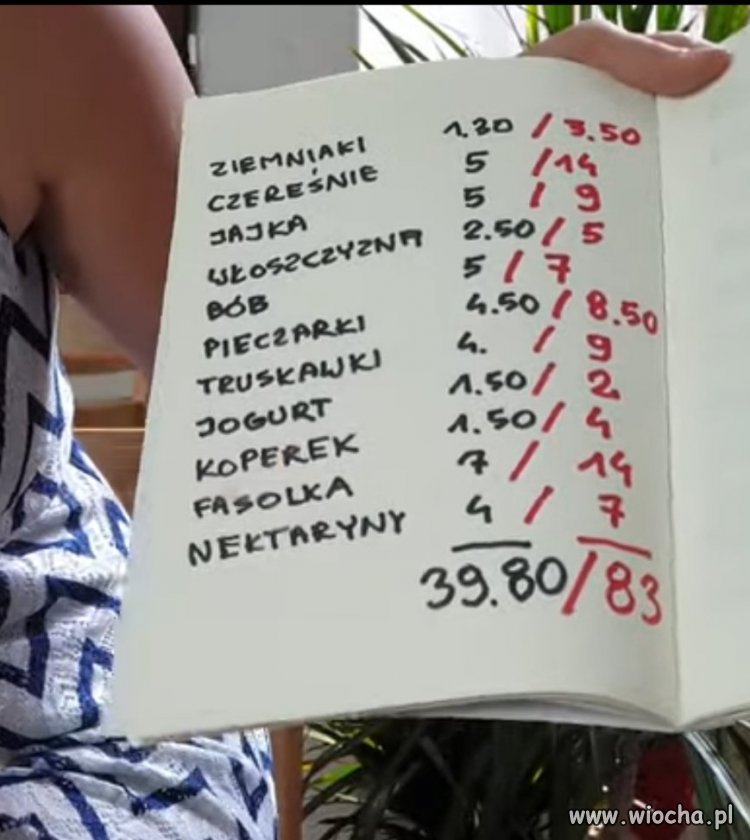 ZIEMNIAKI 1.30 / 3.50
CZEREŚNIE 5 / 14
JAJKA 5 / 9
WŁOSZCZYZNA 2.50 / 5
BÓB 5 / 7
PIECZARKI 4.50 / 8.50
TRUSKAWKI 4. / 9
JOGURT 1.50 / 2
KOPEREK 1.50 / 4
FASOLKA 7 / 14
NEKTARYNY 4 / 7
39.80 / 83
www.wiocha.pl